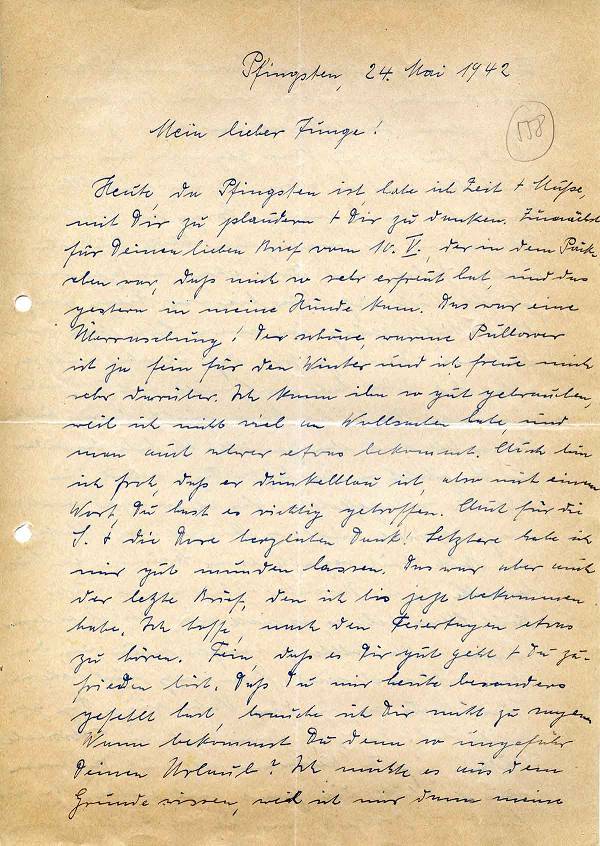 Pfingsten, 24. Mai 1942
558
Mein lieber Junge!
Heute, da Pfingsten ist, habe ich Zeit + Muße,
mit Dir zu plaudern + Dir zu danken. Zunächst
für Deinen lieben Brief vom 10. V., der in dem Päck-
chen war, daß mich so sehr erfreut hat, und das
gestern in meine Hände kam. Das war eine
Überraschung! Der schöne, warme Pullower
ist ja fein für den Winter und ich freue mich
sehr darüber. Ich kann ihn so gut gebrauchen,
weil ich nicht viel an Wollsachen habe, und
man auch schwer etwas bekommt. Auch bin
ich froh, daß er dunkelblau ist, also mit einem
Wort, Du hast es richtig getroffen. Auch für die
S. + die Dose herzlichen Dank! Letztere habe ich
mir gut munden lassen. Das war aber auch
der letzte Brief, den ich bis jetzt bekommen
habe. Ich hoffe, nach den Feiertagen etwas
zu hören. Fein, daß es Dir gut geht + Du zu-
frieden bist. Daß Du mir heute besonders
gefehlt hast, brauche ich Dir nicht zu sagen.
Wann bekommst Du denn so ungefähr
Deinen Urlaub? Ich möchte es aus dem
Grunde wissen, weil ich mir dann meine